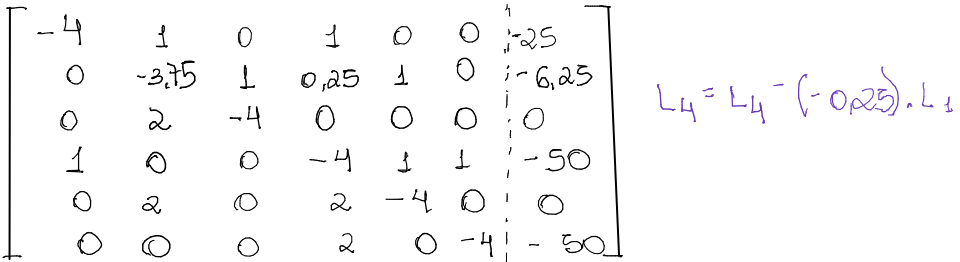 -4 1 0 1 0 0 -25
0 -3,75 1 0,25 1 0 -6,25
0 2 -4 0 0 0 0
1 0 0 -4 1 1 -50
0 2 0 2 -4 0 0
0 0 0 2 0 -4 -50
L4 = L4 - (-0,25).L1